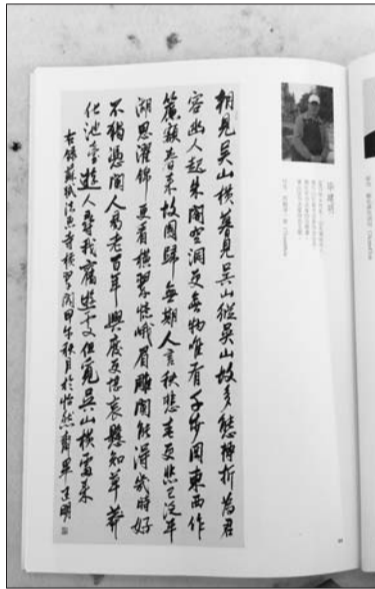 畢建明
朝見吳山橫暮見吳山縱吳山故多態轉折為君
容幽人起朱閣空洞更無物唯有千步岡東西作
簾額春來故國歸無期人言秋悲春更悲已泛平
湖思濯錦更看橫翠憶峨眉雕闌能得幾時好
不獨憑闌人易老百年興廢更堪哀懸知草莽
化池臺遊人尋我舊遊處但覓吳山橫處來
右錄蘇軾法惠寺橫翠閣甲午秋月於怡然齋畢建明